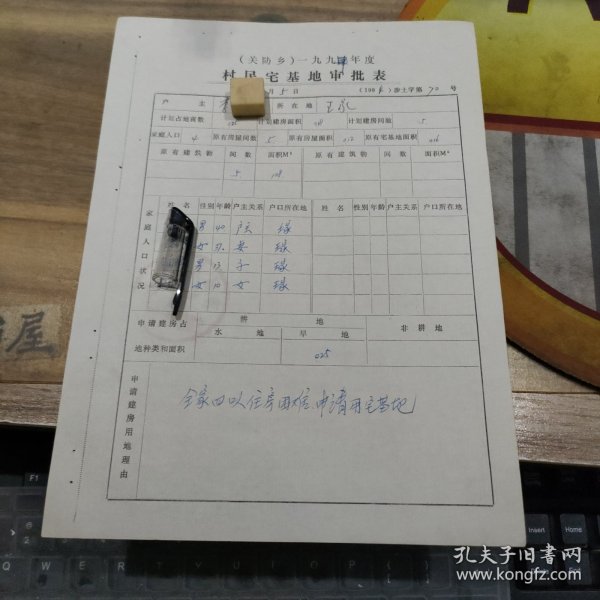 (关防乡)一九九 年度
村民宅基地审批表
月5日 (199 )涉土字第70号
户主 所在地 王
计划占地面数 计划建房面积 计划建房间数 5
家庭人口 4 原有房屋间数 5 原有房屋面积 012 原有宅基地面积 016
原有建筑物 间数 面积M² 原有建筑物 间数 面积M²
5 108
家庭人口状况
姓名 性别 年龄 户主关系 户口所在地 姓名 性别 年龄 户主关系 户口所在地
男 40 户主
女 妻
男 13 子
女 10 女
申请建房占地种类和面积
耕地 非耕地
水地 旱地
025
申请建房用地理由
全家四口人住房困难,申请用宅基地
屋
F1
Insert Home
Q W E R T Y U I O P
孔夫子旧书网
www.kongfz.com